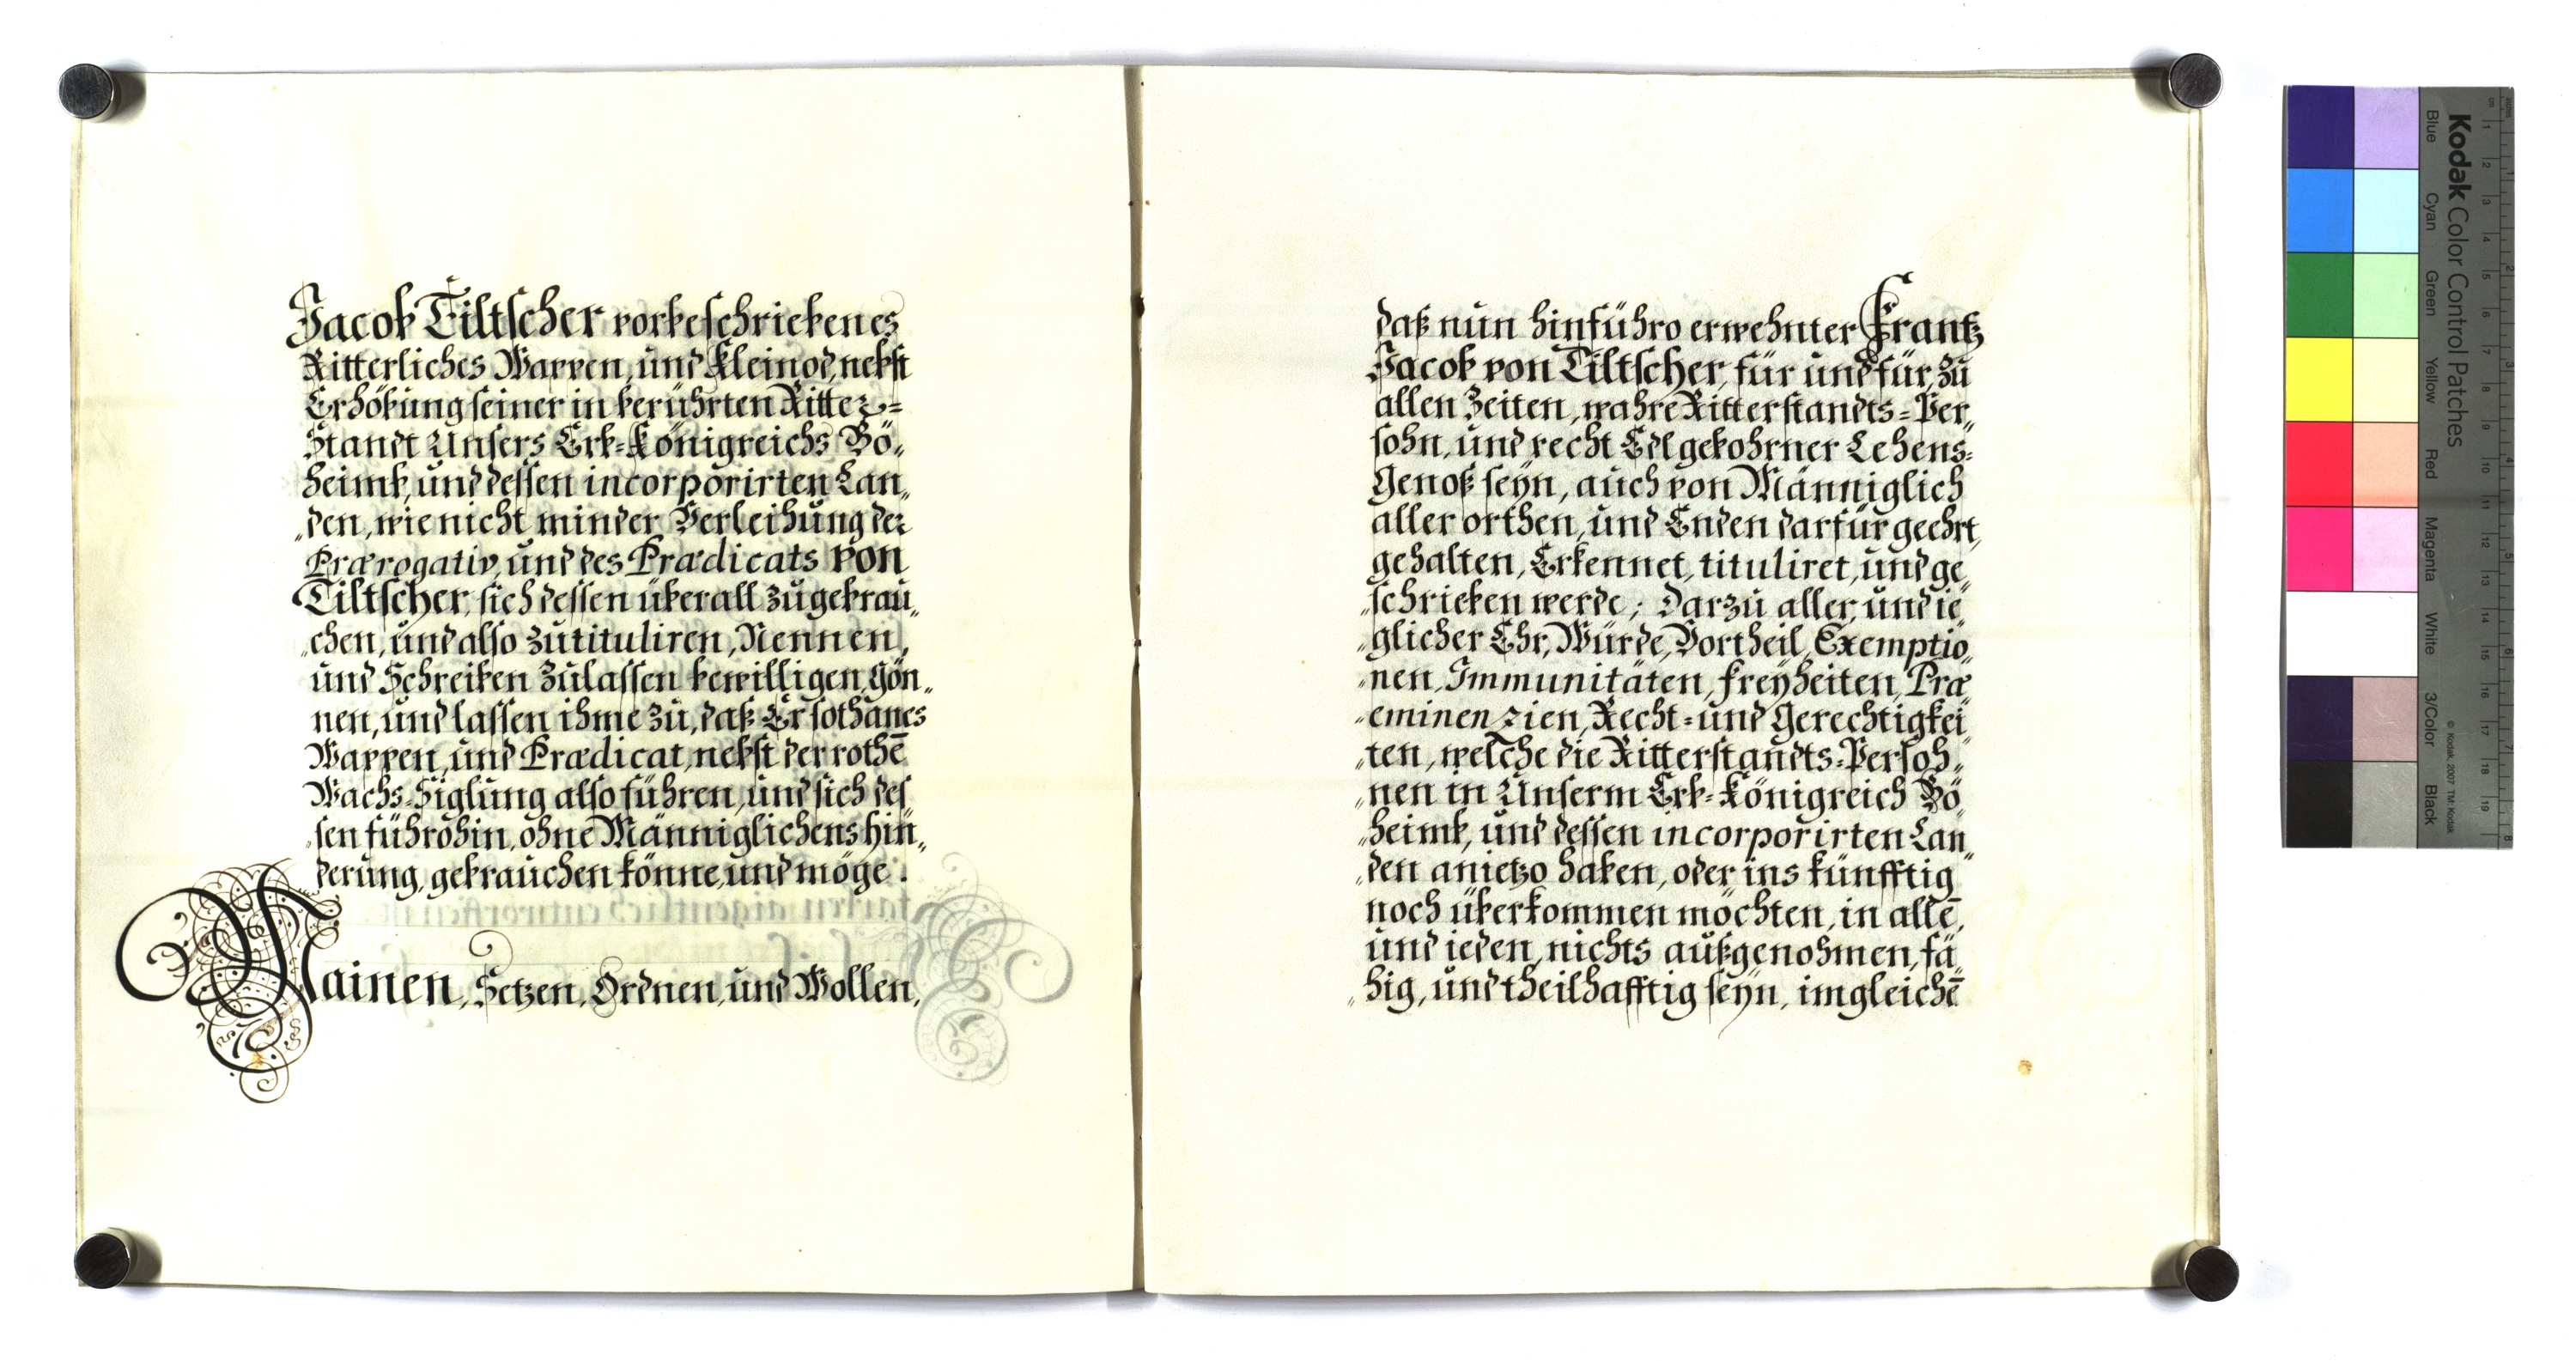 Jacob Tiltscher vorbeschriebenes
Ritterliches Wappen, und Kleinod, nebst
Erhöbung seiner in berührten Ritter=
Standt Unsers Erb=Königreichs Bö„
heimb, und dessen incorporirten Lan„
„den, wie nicht minder Verleihung der
Prærogativ, und des Prædicats von
Tiltscher, sich dessen überall zugebrau„
„chen, und also zutituliren, Nennen,
und Schreiben zulassen bewilligen, Gön„
nen, und lassen ihme zu, daß Er sothanes
Wappen, und Prædicat, nebst der rothē
Wachs=Siglung also führen, und sich des„
„sen führohin, ohne Männiglichens Hin„
derung, gebrauchen könne, und möge.
Mainen, Setzen, Ordnen, und Wollen,
daß nun hinführo erwehnter Frantz
Jacob von Tiltscher, für und für, zu
allen Zeiten, wahre Ritterstandts=Per„
sohn, und recht Edlgebohrner Lehens=
Genoß seyn, auch von Männiglich
aller orthen, und Enden darfür geehrt,
gehalten, Erkennet, tituliret, und ge„
„schrieben werde; Darzu aller, und ie„
„glicher Ehr, Würde, Vortheil, Exemptio„
„nen, Immunitäten, freyheiten, Præ„
„eminenzien, Recht= und Gerechtigkei„
„ten, welche die Ritterstandts=Persoh„
„nen in Unserm Erb=Königreich Bö„
„heimb, und dessen incorporirten Lan„
„den anietzo haben, oder ins künfftig
noch überkommen möchten, in allē,
und ieden, nichts außgenohmen, fä„
„hig, und theilhafftig seyn, imgleichē
Kodak Color Control Patches
Blue Cyan Green Yellow Red Magenta White 3/Color Black
© Kodak, 2007 TM: Kodak
cm 1 2 3 4 5 6 7 8 9 10 11 12 13 14 15 16 17 18 19
inches 1 2 3 4 5 6 7 8